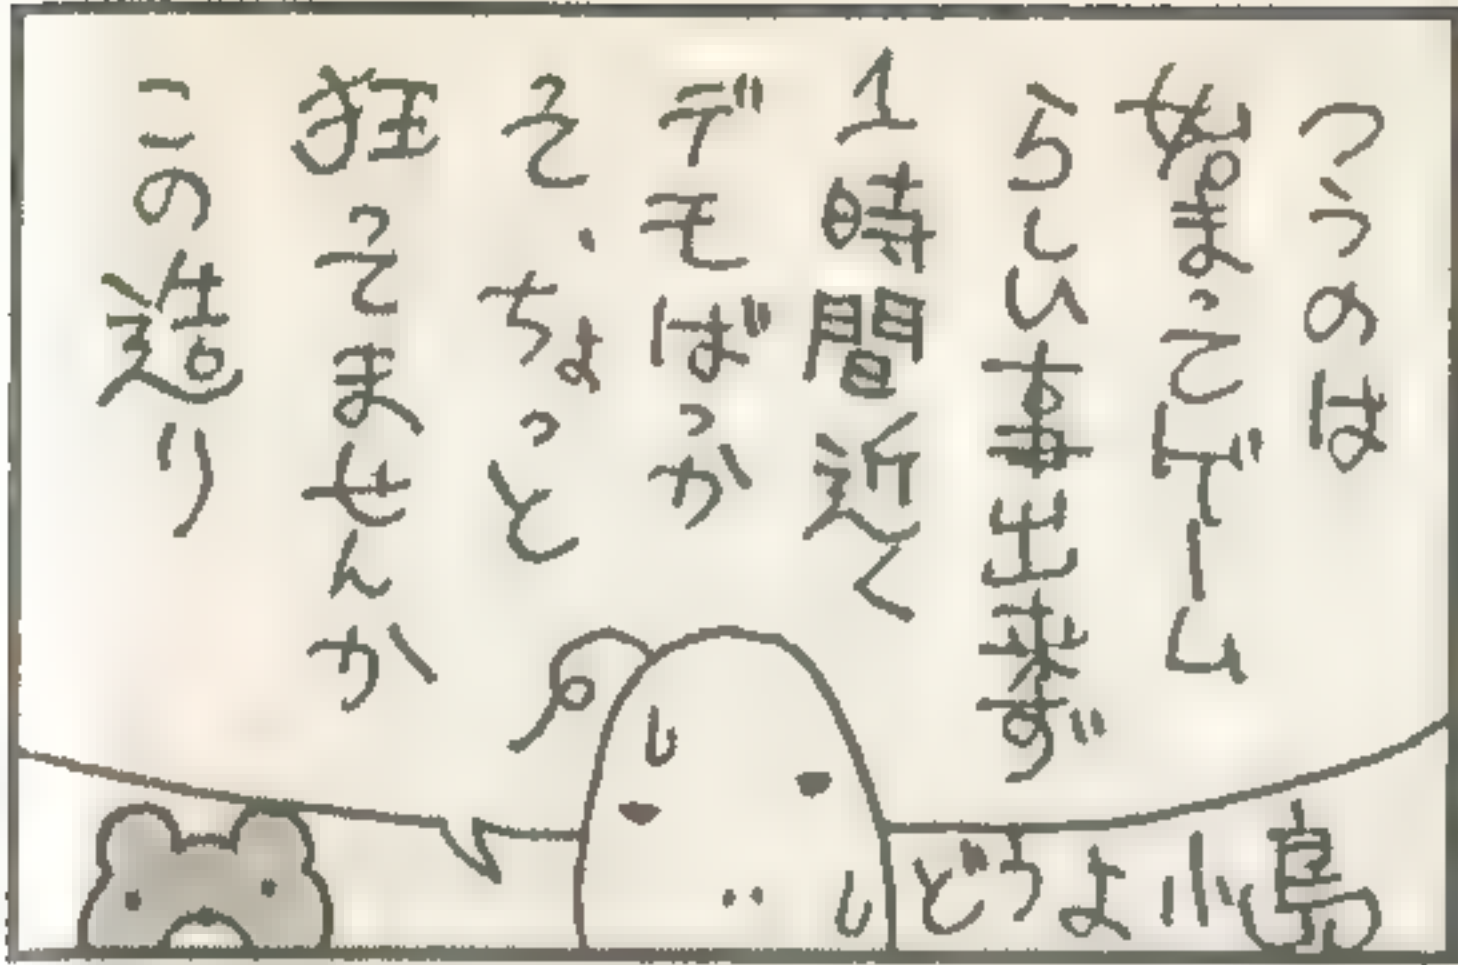 つうのは
始まってゲーム
らしい事出来ず
1時間近く
デモばっか
そ、ちょっと
狂ってませんか
この造り
どうよ小島